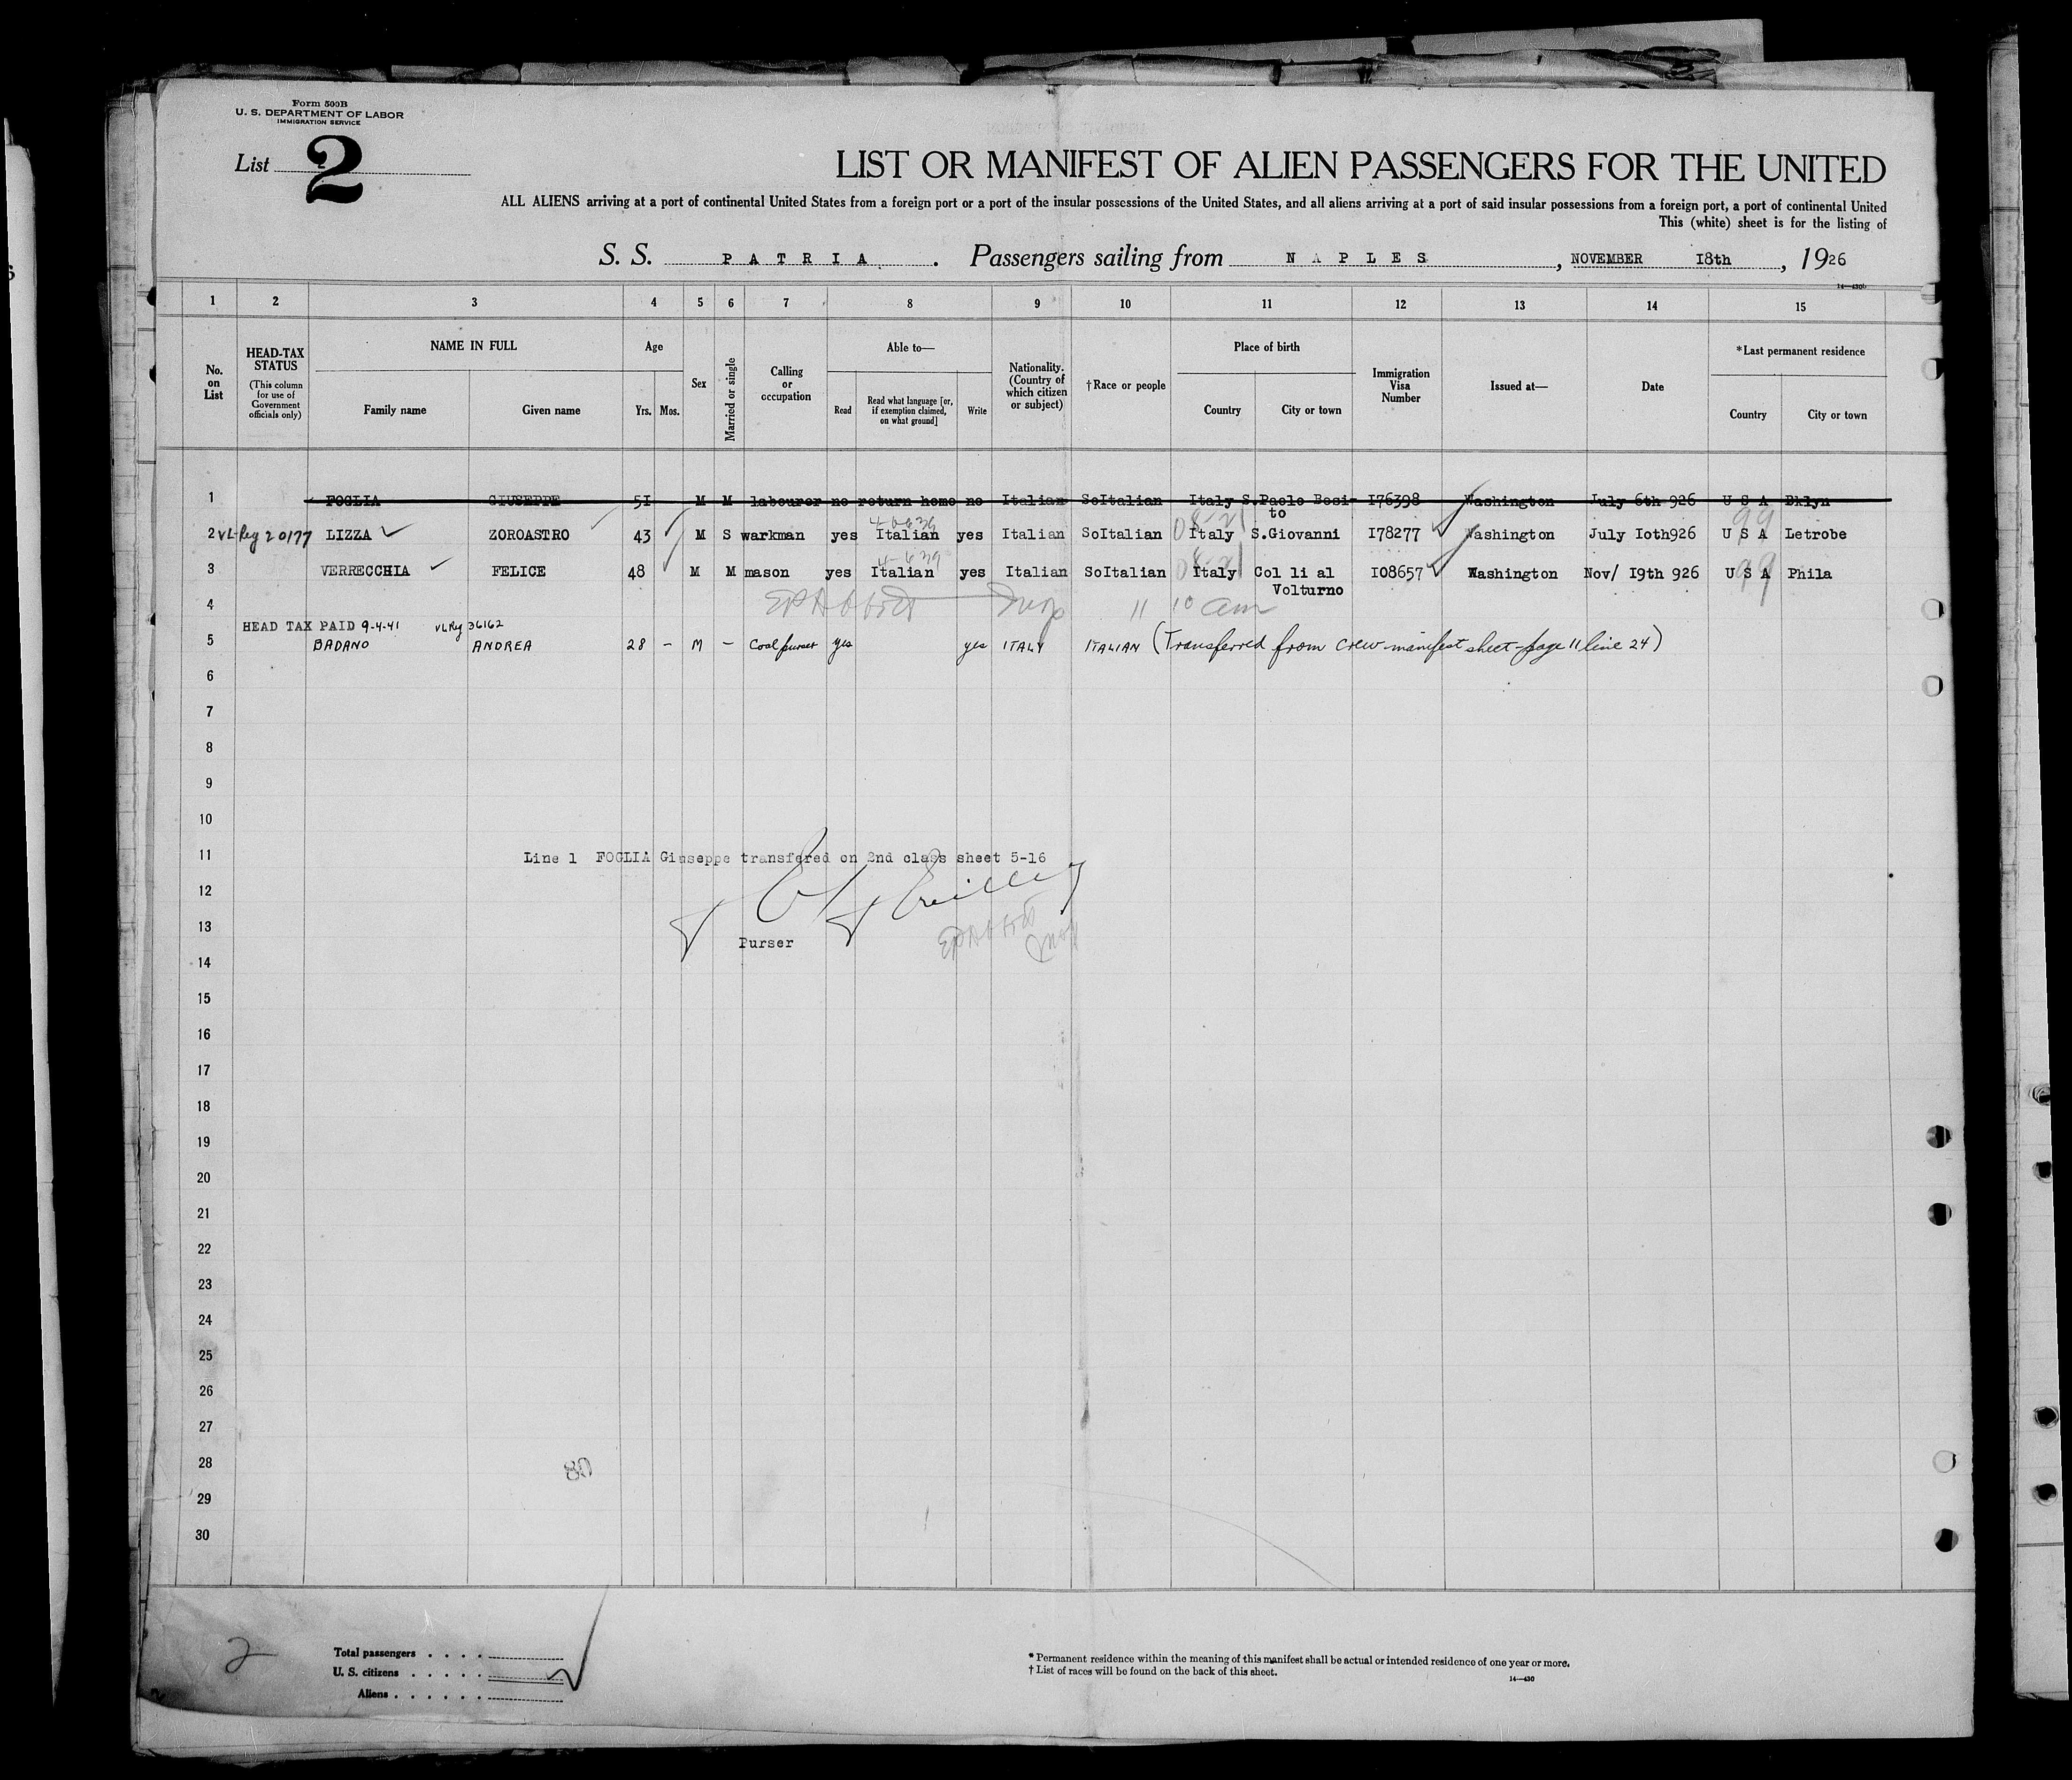 Form 500B
U. S. DEPARTMENT OF LABOR
IMMIGRATION SERVICE
List 2
LIST OR MANIFEST OF ALIEN PASSENGERS FOR THE UNITED
ALL ALIENS arriving at a port of continental United States from a foreign port or a port of the insular possessions of the United States, and all aliens arriving at a port of said insular possessions from a foreign port, a port of continental United
This (white) sheet is for the listing of
S. S. PATRIA. Passengers sailing from NAPLES, NOVEMBER I8th, 1926
1 2 3 4 5 6 7 8 9 10 11 12 13 14 15
No. on List
HEAD-TAX STATUS (This column for use of Government officials only)
NAME IN FULL Family name Given name
Age Yrs. Mos.
Sex
Married or single
Calling or occupation
Able to— Read Read what language [or, if exemption claimed, on what ground] Write
Nationality. (Country of which citizen or subject)
†Race or people
Place of birth Country City or town
Immigration Visa Number
Issued at—
Date
*Last permanent residence Country City or town
1 FOGLIA GIUSEPPE 5I M M labourer no return home no Italian SoItalian Italy S.Paolo Besi- I76398 Washington July 6th 926 U S A Bklyn
to
2 VL-Reg 20177 LIZZA ZOROASTRO 43 M S warkman yes Italian yes Italian SoItalian Italy S.Giovanni I78277 Washington July Ioth926 U S A Letrobe
3 VERRECCHIA FELICE 48 M M mason yes Italian yes Italian SoItalian Italy Col li al I08657 Washington Nov/ I9th 926 U S A Phila
Volturno
4 11 10 am
HEAD TAX PAID 9-4-41 VL Reg 36162
5 BADANO ANDREA 28 - M - yes yes ITALY ITALIAN (Transferred from crew manifest sheet-page 11 line 24)
6
7
8
9
10
11 Line 1 FOGLIA Giuseppe transfered on 2nd class sheet 5-16
12
13
Purser
14
15
16
17
18
19
20
21
22
23
24
25
26
27
28
80
29
30
2
Total passengers
U. S. citizens
Aliens
* Permanent residence within the meaning of this manifest shall be actual or intended residence of one year or more.
† List of races will be found on the back of this sheet.
14—430